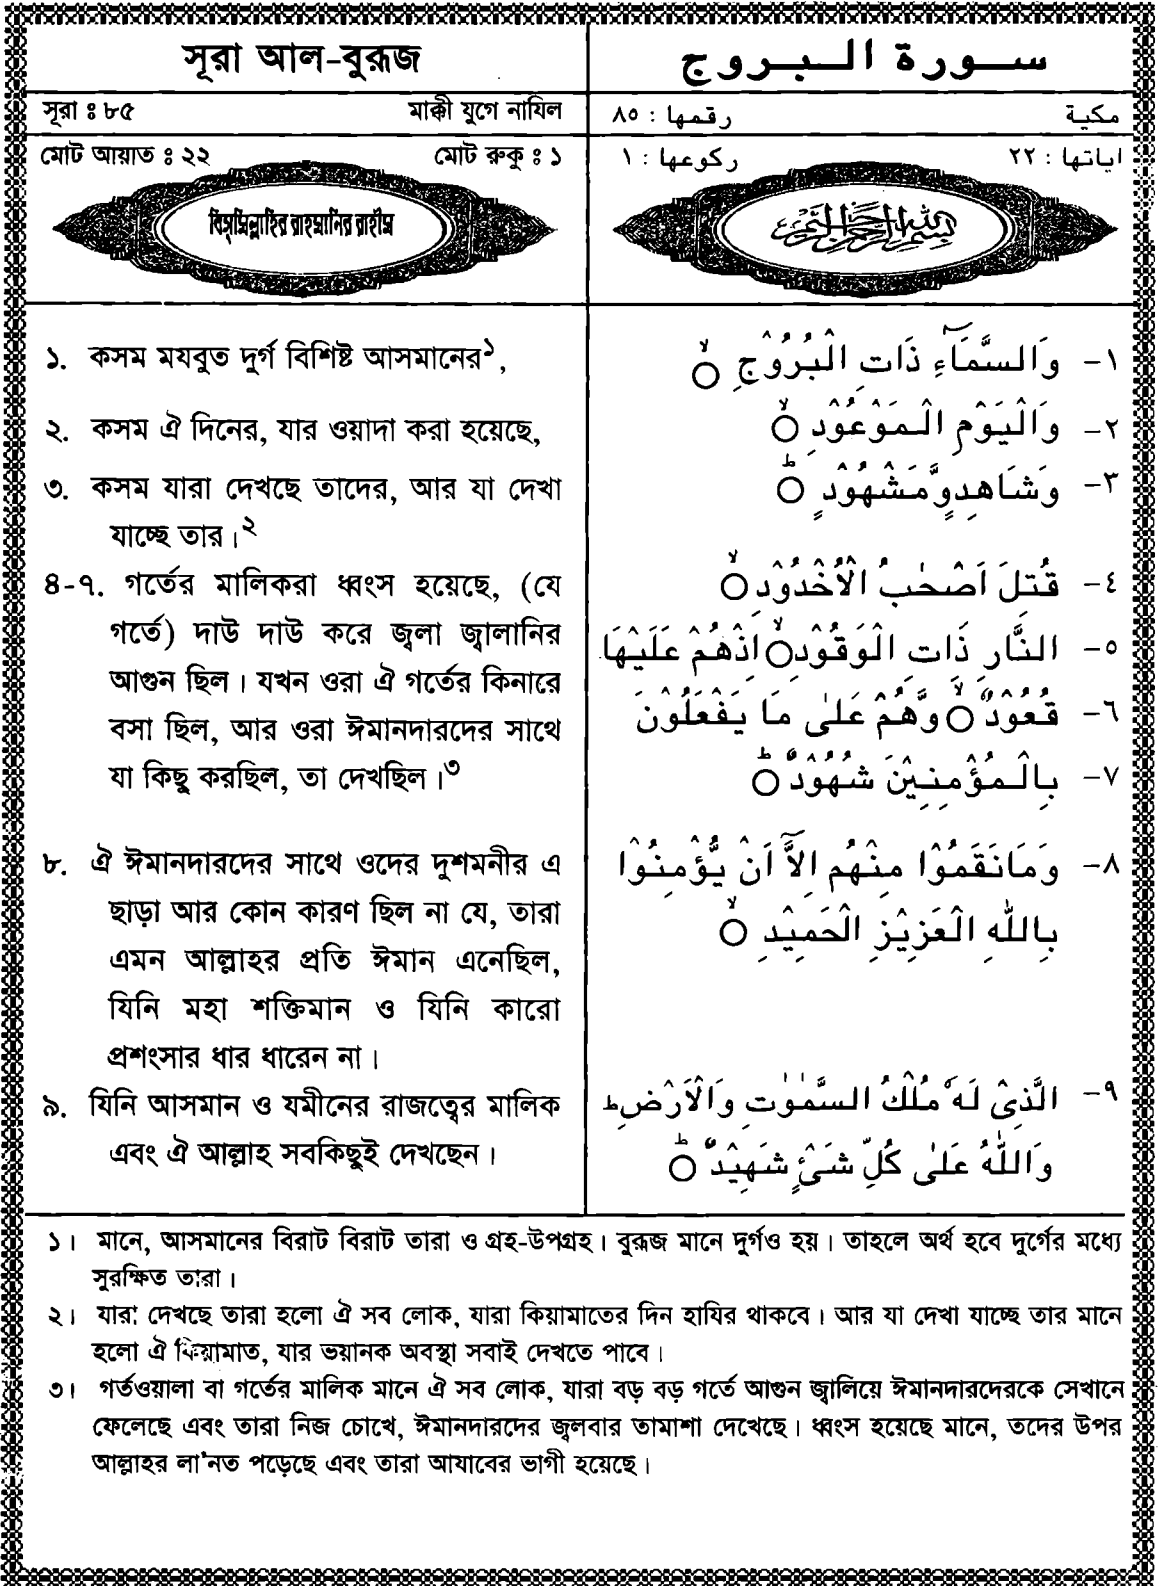 সূরা আল-বুরূজ
سورة البروج
সূরা ঃ ৮৫ মাক্কী যুগে নাযিল
مكية رقمها : ٨٥
মোট আয়াত ঃ ২২ মোট রুকু ঃ ১
اياتها : ٢٢ ركوعها : ١
বিস্মিল্লাহির রাহমানির রাহীম
بسم الله الرحمن الرحيم
১. কসম মযবুত দুর্গ বিশিষ্ট আসমানের১,
২. কসম ঐ দিনের, যার ওয়াদা করা হয়েছে,
৩. কসম যারা দেখছে তাদের, আর যা দেখা
যাচ্ছে তার।২
৪-৭. গর্তের মালিকরা ধ্বংস হয়েছে, (যে
গর্তে) দাউ দাউ করে জ্বলা জ্বালানির
আগুন ছিল। যখন ওরা ঐ গর্তের কিনারে
বসা ছিল, আর ওরা ঈমানদারদের সাথে
যা কিছু করছিল, তা দেখছিল।৩
৮. ঐ ঈমানদারদের সাথে ওদের দুশমনীর এ
ছাড়া আর কোন কারণ ছিল না যে, তারা
এমন আল্লাহর প্রতি ঈমান এনেছিল,
যিনি মহা শক্তিমান ও যিনি কারো
প্রশংসার ধার ধারেন না।
৯. যিনি আসমান ও যমীনের রাজত্বের মালিক
এবং ঐ আল্লাহ সবকিছুই দেখছেন।
١- وَالسَّمَآءِ ذَاتِ الْبُرُوْجِ ۙ○
٢- وَالْيَوْمِ الْمَوْعُوْدِ ۙ○
٣- وَشَاهِدٍوَّمَشْهُوْدٍ ؕ○
٤- قُتِلَ اَصْحٰبُ الْاُخْدُوْدِ ۙ○
٥- النَّارِ ذَاتِ الْوَقُوْدِ ۙ○ اِذْهُمْ عَلَيْهَا
٦- قُعُوْدٌ ۙ○ وَّهُمْ عَلٰى مَا يَفْعَلُوْنَ
٧- بِالْمُؤْمِنِيْنَ شُهُوْدٌ ؕ○
٨- وَمَانَقَمُوْا مِنْهُمْ اِلَّآ اَنْ يُّؤْمِنُوْا
بِاللّٰهِ الْعَزِيْزِ الْحَمِيْدِ ۙ○
٩- الَّذِىْ لَهٗ مُلْكُ السَّمٰوٰتِ وَالْاَرْضِ ؕ
وَاللّٰهُ عَلٰى كُلِّ شَىْءٍ شَهِيْدٌ ؕ○
১। মানে, আসমানের বিরাট বিরাট তারা ও গ্রহ-উপগ্রহ। বুরূজ মানে দুর্গও হয়। তাহলে অর্থ হবে দুর্গের মধ্যে
সুরক্ষিত তারা।
২। যারা দেখছে তারা হলো ঐ সব লোক, যারা কিয়ামাতের দিন হাযির থাকবে। আর যা দেখা যাচ্ছে তার মানে
হলো ঐ কিয়ামাত, যার ভয়ানক অবস্থা সবাই দেখতে পাবে।
৩। গর্তওয়ালা বা গর্তের মালিক মানে ঐ সব লোক, যারা বড় বড় গর্তে আগুন জ্বালিয়ে ঈমানদারদেরকে সেখানে
ফেলেছে এবং তারা নিজ চোখে, ঈমানদারদের জ্বলবার তামাশা দেখেছে। ধ্বংস হয়েছে মানে, তদের উপর
আল্লাহর লা'নত পড়েছে এবং তারা আযাবের ভাগী হয়েছে।